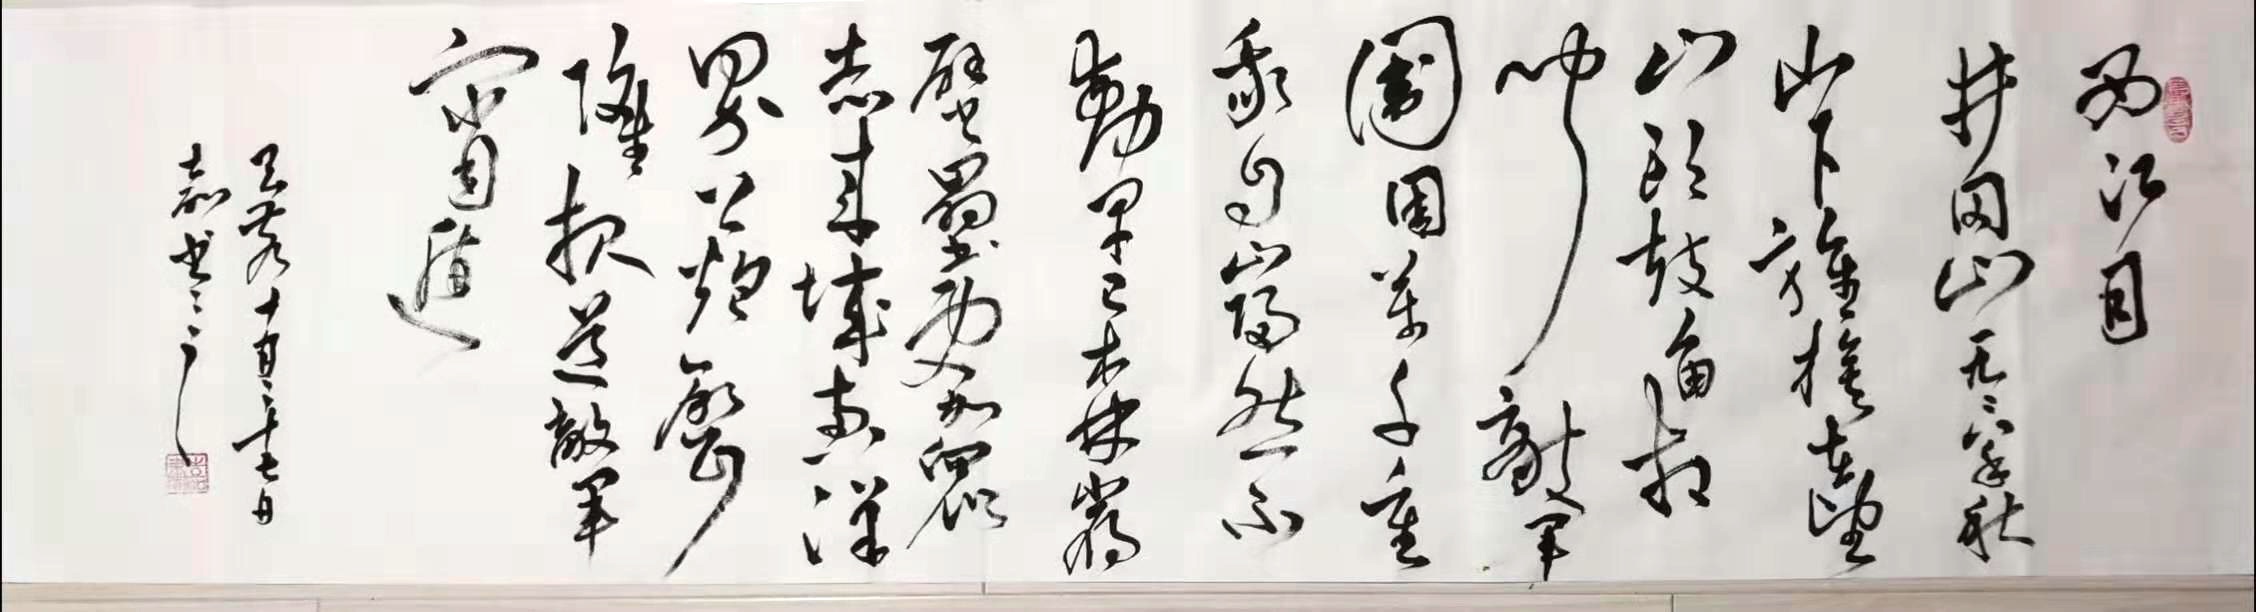 西江月
井冈山一九二八年秋
山下旌旗在望
山头鼓角相
闻敌军
圍困萬千重
我自岿然不
動早已森嚴
壁壘更加眾
志成城黄洋
界上炮聲
隆报道敵軍
宵遁
十月二十七日